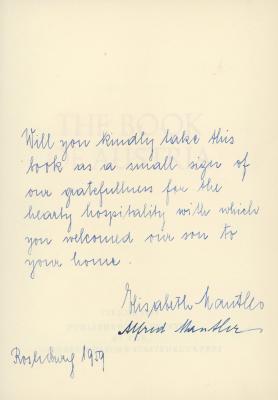 THE BOOK
OF AUSTRIA
Will you kindly take this
book as a small sign of
our gratefullness for the
hearty hospitality with which
you welcomed our son to
your home.
Elisabeth Mantler
Alfred Mantler
1959